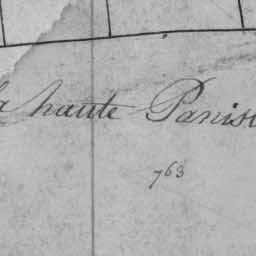 la haute Panis
763